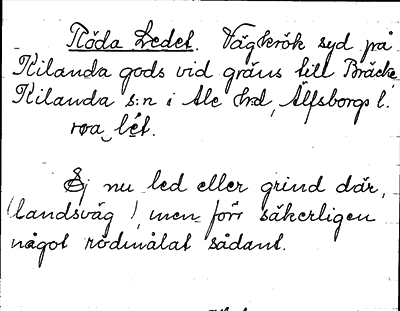 Röda Ledet. Vägkrök syd på
Kilanda gods vid gräns till Bräcke,
Kilanda s:n i Ale hrd, Älfsborgs l.
röa lét.
Ej nu led eller grind där,
(landsväg), men förr säkerligen
något rödmålat sådant.